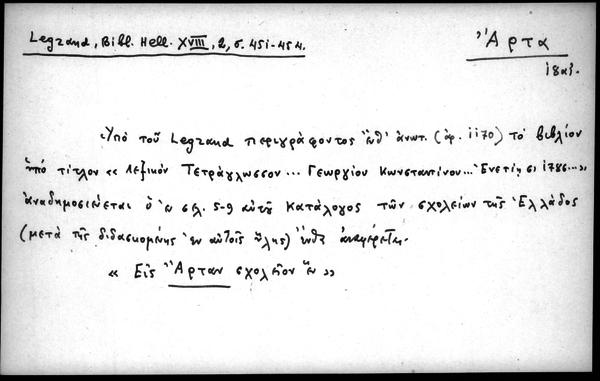 Legrand, Bibl. Hell. XVIII, 2, σ. 451-454.
Ἄρτα
18αἰ.
Ὑπό τοῦ Legrand περιγράφοντος ἔνθ' ἀνωτ. (ἀρ. 1170) τό βιβλίον
ὑπό τίτλον « Λεξικόν Τετράγλωσσον... Γεωργίου Κωνσταντίνου... Ἐνετίῃσι 1786...»,
ἀναδημοσιεύεται ὁ ἐν σελ. 5-9 αὐτοῦ κατάλογος τῶν σχολείων τῆς Ἑλλάδος
(μετά τῆς διδασκομένης ἐν αὐτοῖς ὕλης) ἔνθα ἀναφέρεται.
« Εἰς Ἄρταν σχολεῖον ἕν »